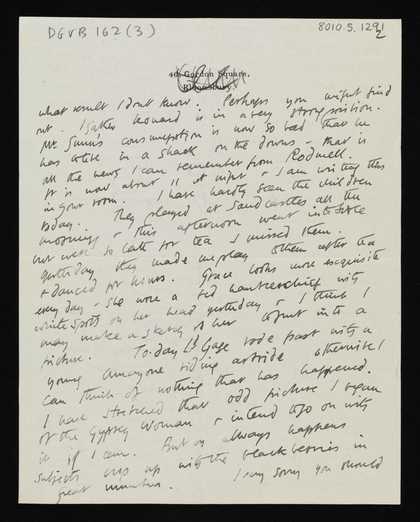 DGVB 162 (3)
8010.5.1291
2
46 Gordon Square,
Bloomsbury.
what result I don't know. Perhaps you might find
out. I gather Leonard is in a very strong position.
Mr consumption is now so bad that he
has to live in a shack on the downs - that is
all the news I can remember from Rodmell.
It is now about 11 at night & I am writing this
in your room. I have hardly seen the children
today. They played at Sandcastles all the
morning & this afternoon went into
but were so late for tea I missed them.
Yesterday they made me play to them after tea
& danced for hours. Grace looks more exquisite
every day - she wore a red handkerchief with
white spots on her head yesterday & I think I
may make a sketch of her & put into a
picture. To-day Ld Gage rode past with a
young American riding astride otherwise I
can think of nothing that has happened.
I have stretched that odd picture I began
of the Gypsy Woman & intend to go on with
it if I can. But as always happens
subjects crop up with the blackberries in
great numbers. I am sorry you should